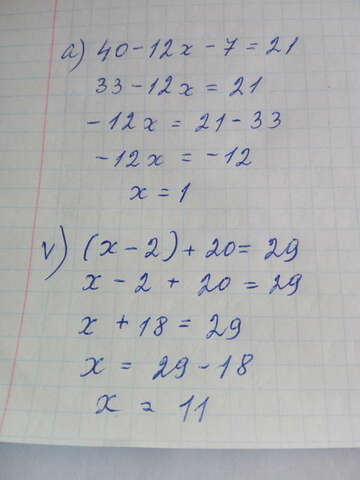 а) 40 - 12x - 7 = 21
33 - 12x = 21
-12x = 21 - 33
-12x = -12
x = 1
v) (x - 2) + 20 = 29
x - 2 + 20 = 29
x + 18 = 29
x = 29 - 18
x = 11